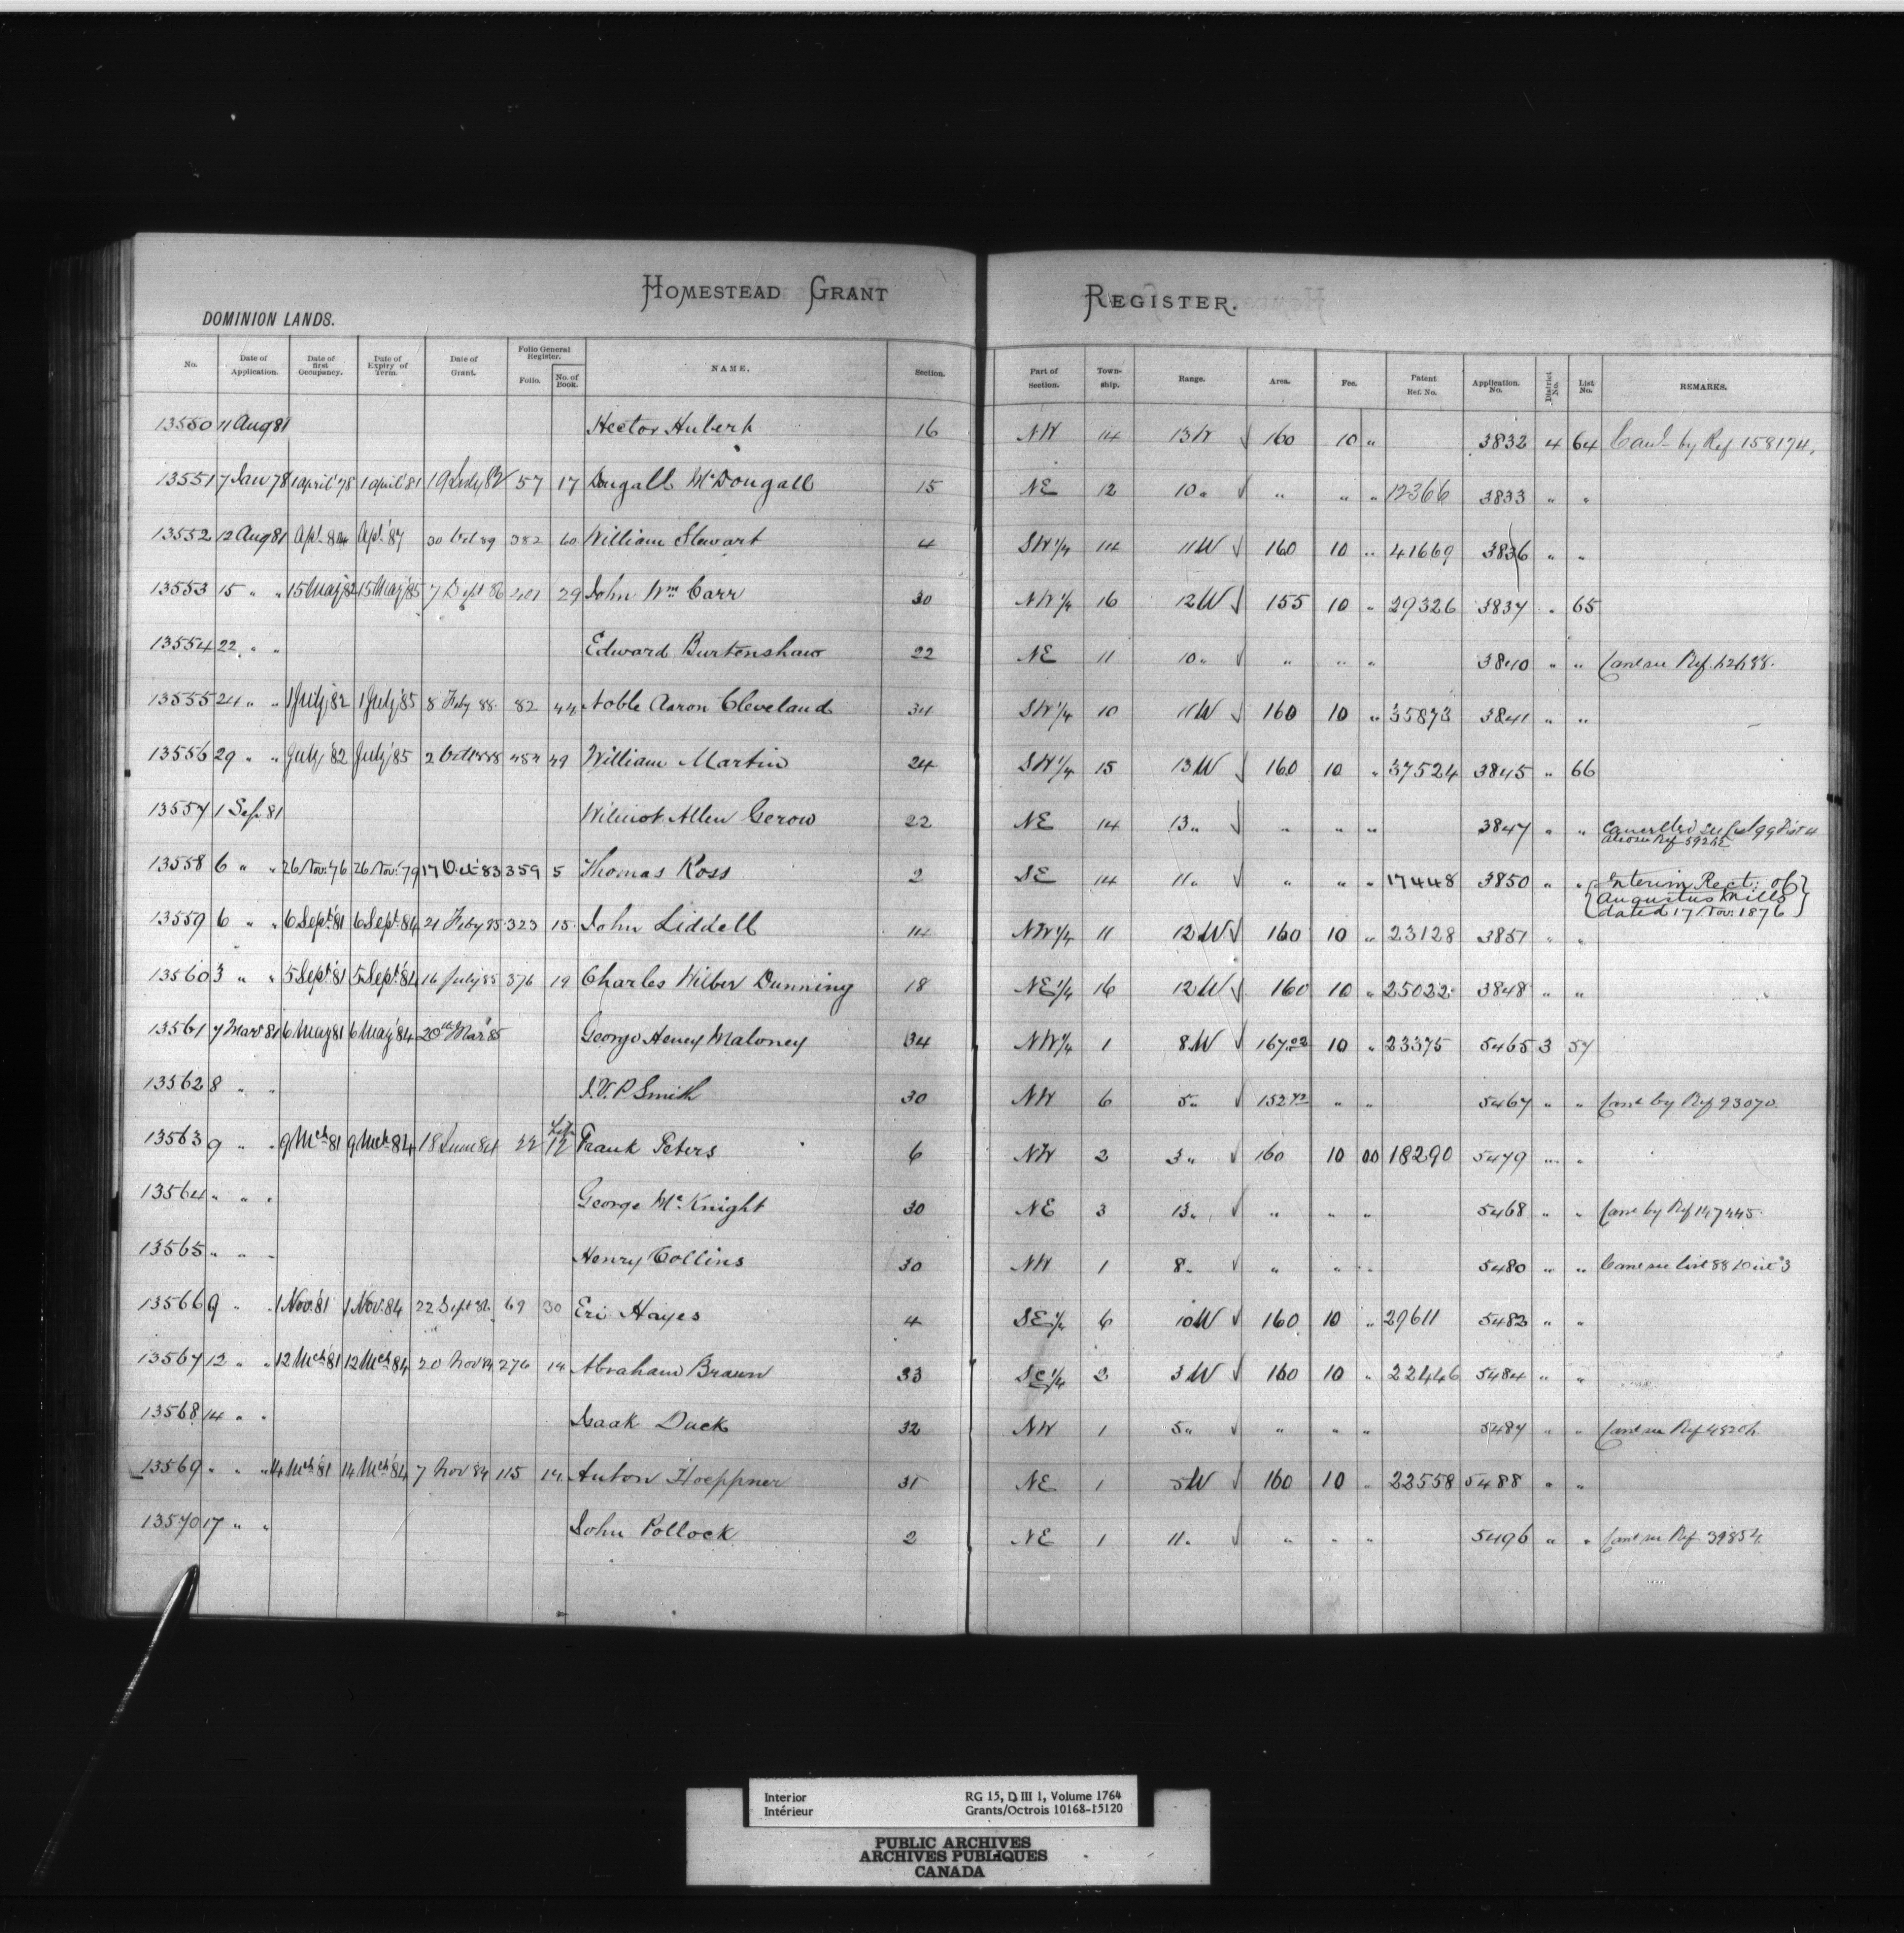 HOMESTEAD GRANT REGISTER.
DOMINION LANDS.
No. Date of Application. Date of first Occupancy. Date of Expiry of Term. Date of Grant. Folio General Register. Folio. No. of Book. NAME. Section. Part of Section. Town-ship. Range. Area. Fee. Patent Ref. No. Application. No. District No. List No. REMARKS.
13550 11 Aug 81 Hector Hubert 16 NW 14 13W √ 160 10 " 3832 4 64 Canl by Ref 158174.
13551 7 Jan 78 1 April '78 1 April '81 19 July 82 57 17 Dougall McDougall 15 NE 12 10 " √ " " " 12366 3833 " "
13552 12 Aug 81 Apl. 84 Apl. '87 30 Oct 89 382 60 William Stewart 4 SW 1/4 14 11W √ 160 10 " 41669 3836 " "
13553 15 " " 15 May '82 15 May '85 7 Sept 86 401 29 John Wm Carr 30 NW 1/4 16 12W √ 155 10 " 29326 3837 " 65
13554 22 " " Edward Burtenshaw 22 NE 11 10 " √ " " " 3840 " " Canl see Ref.
13555 24 " " 1 July '82 1 July '85 8 Feby 88. 82 44 Noble Aaron Cleveland 34 SW 1/4 10 11W √ 160 10 " 35873 3841 " "
13556 29 " " July '82 July '85 2 Oct 1888 454 49 William Martin 24 SW 1/4 15 13W √ 160 10 " 37524 3845 " 66
13557 1 Sep. 81 Wilmot Allen Gerow 22 NE 14 13 " √ " " " 3847 " " Cancelled see List 99 Dist 4
also see Ref
13558 6 " " 26 Nov: '76 26 Nov: '79 17 Oct '83 359 5 Thomas Ross 2 SE 14 11 " √ " " " 17448 3850 " " {Interim Rect: of
Augustus Mills
dated 17 Nov: 1876}
13559 6 " " 6 Sept '81 6 Sept. '84 21 Feby 85 323 15 John Liddell 14 NW 1/4 11 12W √ 160 10 " 23128 3851 " "
13560 3 " " 5 Sept '81 5 Sept. '84 16 July 85 376 19 Charles Wilber Dunning 18 NE 1/4 16 12W √ 160 10 " 25022 3848 " "
13561 7 Mar 81 6 May 81 6 May '84 20th Mar '85 George Henry Maloney 34 NW 1/4 1 8W √ 167.02 10 " 23375 5465 3 57
13562 8 " " J.V.P Smith 30 NW 6 5 " √ 152 42 " " 5467 " " Canl by Ref 93070.
13563 9 " " 9 Mch 81 9 Mch 84 18 June 84 22 12 Frank Peters 6 NW 2 3 " √ 160 10 00 18290 5479 " "
13564 " " " George McKnight 30 NE 3 13 " √ " " " 5468 " " Canl by Ref 147445.
13565 " " " Henry Collins 30 NW 1 8 " √ " " " 5480 " " Canl see List 88 Dist 3
13566 9 " " 1 Nov. 81 1 Nov. 84 22 Sept 86 69 30 Eri Hayes 4 SE 1/4 6 10W √ 160 10 " 29611 5483 " "
13567 12 " " 12 Mch 81 12 Mch 84 20 Nov 84 276 14 Abraham Braun 33 SE 1/4 2 3W √ 160 10 " 22446 5484 " "
13568 14 " " Isaak Dueck 32 NW 1 5 " √ " " " 5487 " " Canl see Ref
13569 " " " 14 Mch 81 14 Mch 84 7 Nov 84 115 14 Anton Hoeppner 31 NE 1 5W √ 160 10 " 22558 5488 " "
13570 17 " " John Pollock 2 NE 1 11 " √ " " " 5496 " " Canl see Ref 39854.
Interior RG 15, D III 1, Volume 1764
Intérieur Grants/Octrois 10168-15120
PUBLIC ARCHIVES
ARCHIVES PUBLIQUES
CANADA